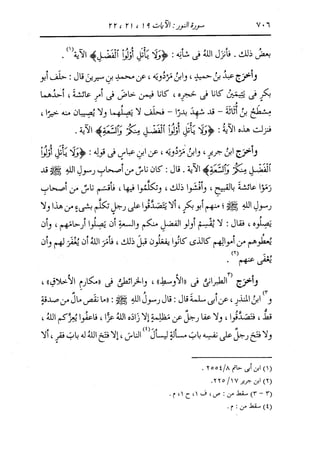 ٧٠٦ سورة النور : الآيات ١٩ ، ٢١ ، ٢٢
بعض ذلك . فأنزل اللهُ فى شأنِه : ﴿وَلَا يَأْتَلِ أُوْلُوا الْفَضْلِ﴾ الآية(١) .
وأخرج عبدُ بنُ حميدٍ ، وابنُ مَرْدُويَه ، عن محمدِ بنِ سيرينَ قال : حلَف أبو
بكرٍ فى يتيمَيْنِ كانا فى حَجْرِه ، كانا فيمن خاض فى أمرِ عائشةَ ، أحدُهما
مِسْطَحُ بنُ أُثَاثَةَ - قد شهِد بدرًا - فحلَف لا يَصِلُهما ولا يُصيبان منه خيرًا ،
فنزلت هذه الآيةُ : ﴿وَلَا يَأْتَلِ أُوْلُوا الْفَضْلِ مِنكُمْ وَالسَّعَةِ﴾ الآية .
وأخرج ابنُ جريرٍ ، وابنُ مَرْدُويَه ، عن ابنِ عباسٍ فى قولِه : ﴿وَلَا يَأْتَلِ أُوْلُوا
الْفَضْلِ مِنكُمْ وَالسَّعَةِ﴾ الآية . قال : كان ناسٌ من أصحابِ رسولِ اللهِ ﷺ قد
رَمَوْا عائشةَ بالقبيحِ ، وأَفشَوْا ذلك ، وتكلَّموا فيها ، فأقسَم ناسٌ من أصحابِ
رسولِ اللهِ ﷺ منهم أبو بكرٍ ، ألا يتَصدَّقوا على رجلٍ تكلَّم بشىءٍ من هذا ولا
يَصِلُوه ، فقال : لا يُقسِمْ أولو الفضلِ منكم والسعةِ أن يَصِلُوا أرحامَهم ، وأن
يُعطُوهم من أموالِهم كالذى كانوا يفعَلون قبلَ ذلك ، فأمَر اللهُ أن يُغْفَرَ لهم وأن
يُعْفَى عنهم(٢) .
وأخرج (٣الطبرانىُّ فى «الأوسطِ» ، والخرائطىُّ فى «مكارمِ الأخلاقِ» ،
و٣) ابنُ المنذرِ ، عن أبى سلمةَ قال : قال رسولُ اللهِ ﷺ : «ما نقَص مالٌ من صدقةٍ
قطُّ ، فتَصَدَّقُوا ، ولا عفا رجلٌ عن مَظلِمةٍ إلا زاده اللهُ عزًّا ، فاعفُوا يُعِزَّكم اللهُ ،
ولا فتَح رجلٌ على نفسِه بابَ مسألةٍ ليسألَ(٤) الناسَ ، إلا فتَح اللهُ له بابَ فقرٍ ، ألا
(١) ابن أبى حاتم ٢٥٥٤/٨ .
(٢) ابن جرير ٢٢٥/١٧ .
(٣ - ٣) سقط من : ص ، ف ١ ، ح ١ ، م .
(٤) سقط من : م .